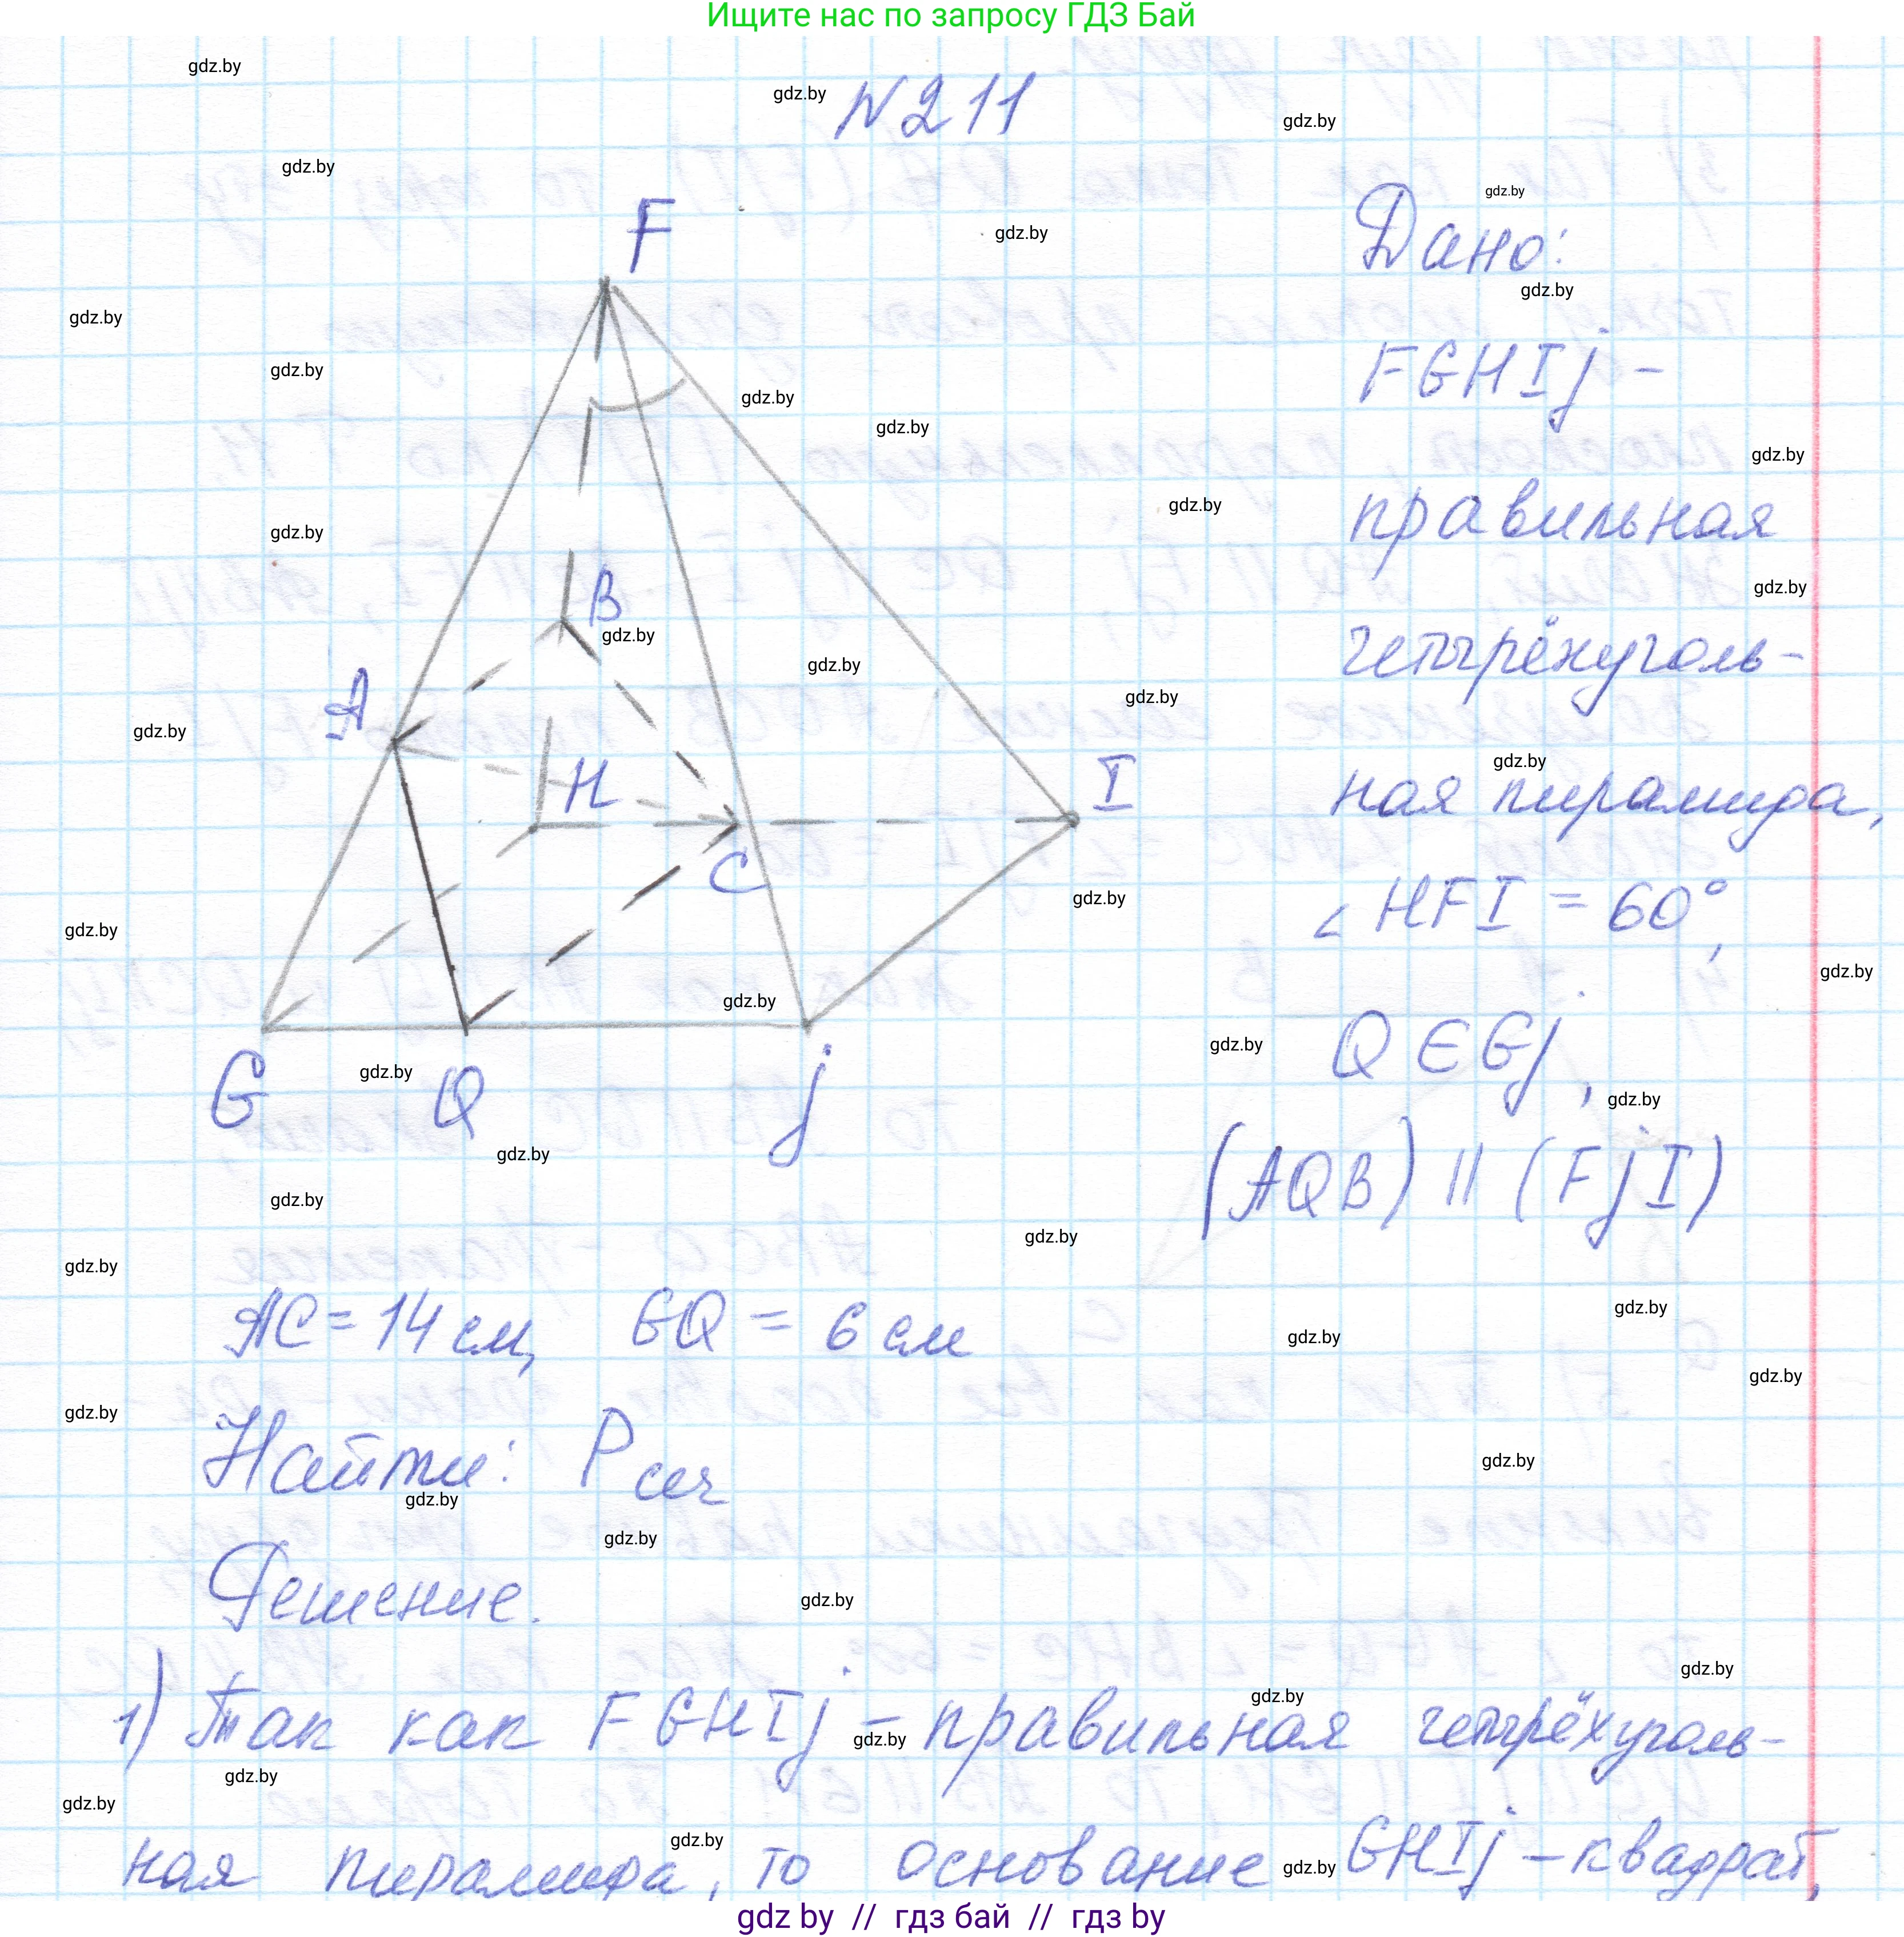 Ищите нас по запросу ГДЗ Бай
gdz.by
№211
F
Дано:
FGHIj -
правильная
четырёхуголь-
ная пирамида,
∠HFI = 60°,
Q ∈ Gj,
(AQB) || (FjI)
B
A
H
I
C
G Q j
AC = 14 см, GQ = 6 см
Найти: Pсеч
Решение.
1) Так как FGHIj - правильная четырёхуголь-
ная пирамида, то основание GHIj - квадрат,
gdz by // гдз бай // гдз by